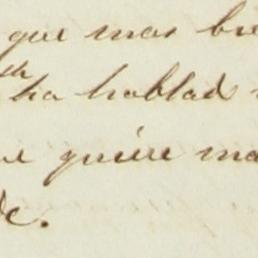 que mas bie
ha hablad
e quiere ma
de.